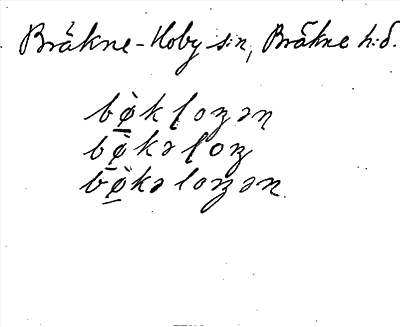 Bräkne-Hoby s:n, Bräkne h:d.
bø̱̀k loʒən
bø̱̀kə loʒ
bø̱̀kə loʒən